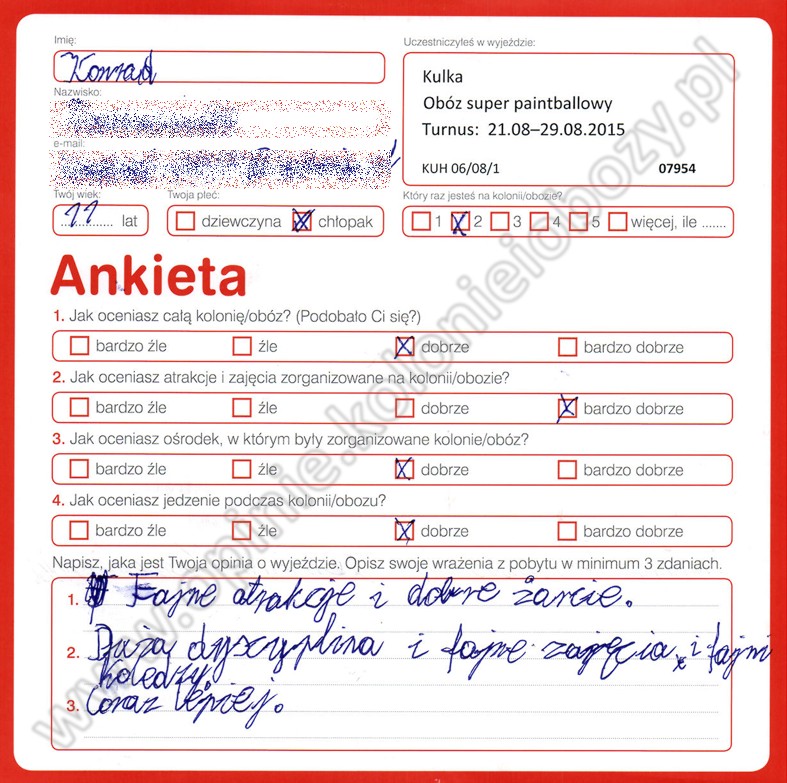 Imię:
Konrad
Nazwisko:
e-mail:
Twój wiek:
11 lat
Twoja płeć:
dziewczyna chłopak
Uczestniczyłeś w wyjeździe:
Kulka
Obóz super paintballowy
Turnus: 21.08–29.08.2015
KUH 06/08/1 07954
Który raz jesteś na kolonii/obozie?
1 2 3 4 5 więcej, ile .......
Ankieta
1. Jak oceniasz całą kolonię/obóz? (Podobało Ci się?)
bardzo źle źle dobrze bardzo dobrze
2. Jak oceniasz atrakcje i zajęcia zorganizowane na kolonii/obozie?
bardzo źle źle dobrze bardzo dobrze
3. Jak oceniasz ośrodek, w którym były zorganizowane kolonie/obóz?
bardzo źle źle dobrze bardzo dobrze
4. Jak oceniasz jedzenie podczas kolonii/obozu?
bardzo źle źle dobrze bardzo dobrze
Napisz, jaka jest Twoja opinia o wyjeździe. Opisz swoje wrażenia z pobytu w minimum 3 zdaniach.
1. Fajne atrakcje i dobre żarcie.
2. Duża dyscyplina i fajne zajęcia i fajni
koledzy.
3. Coraz lepiej.
www.opinie.kolonieiobozy.pl